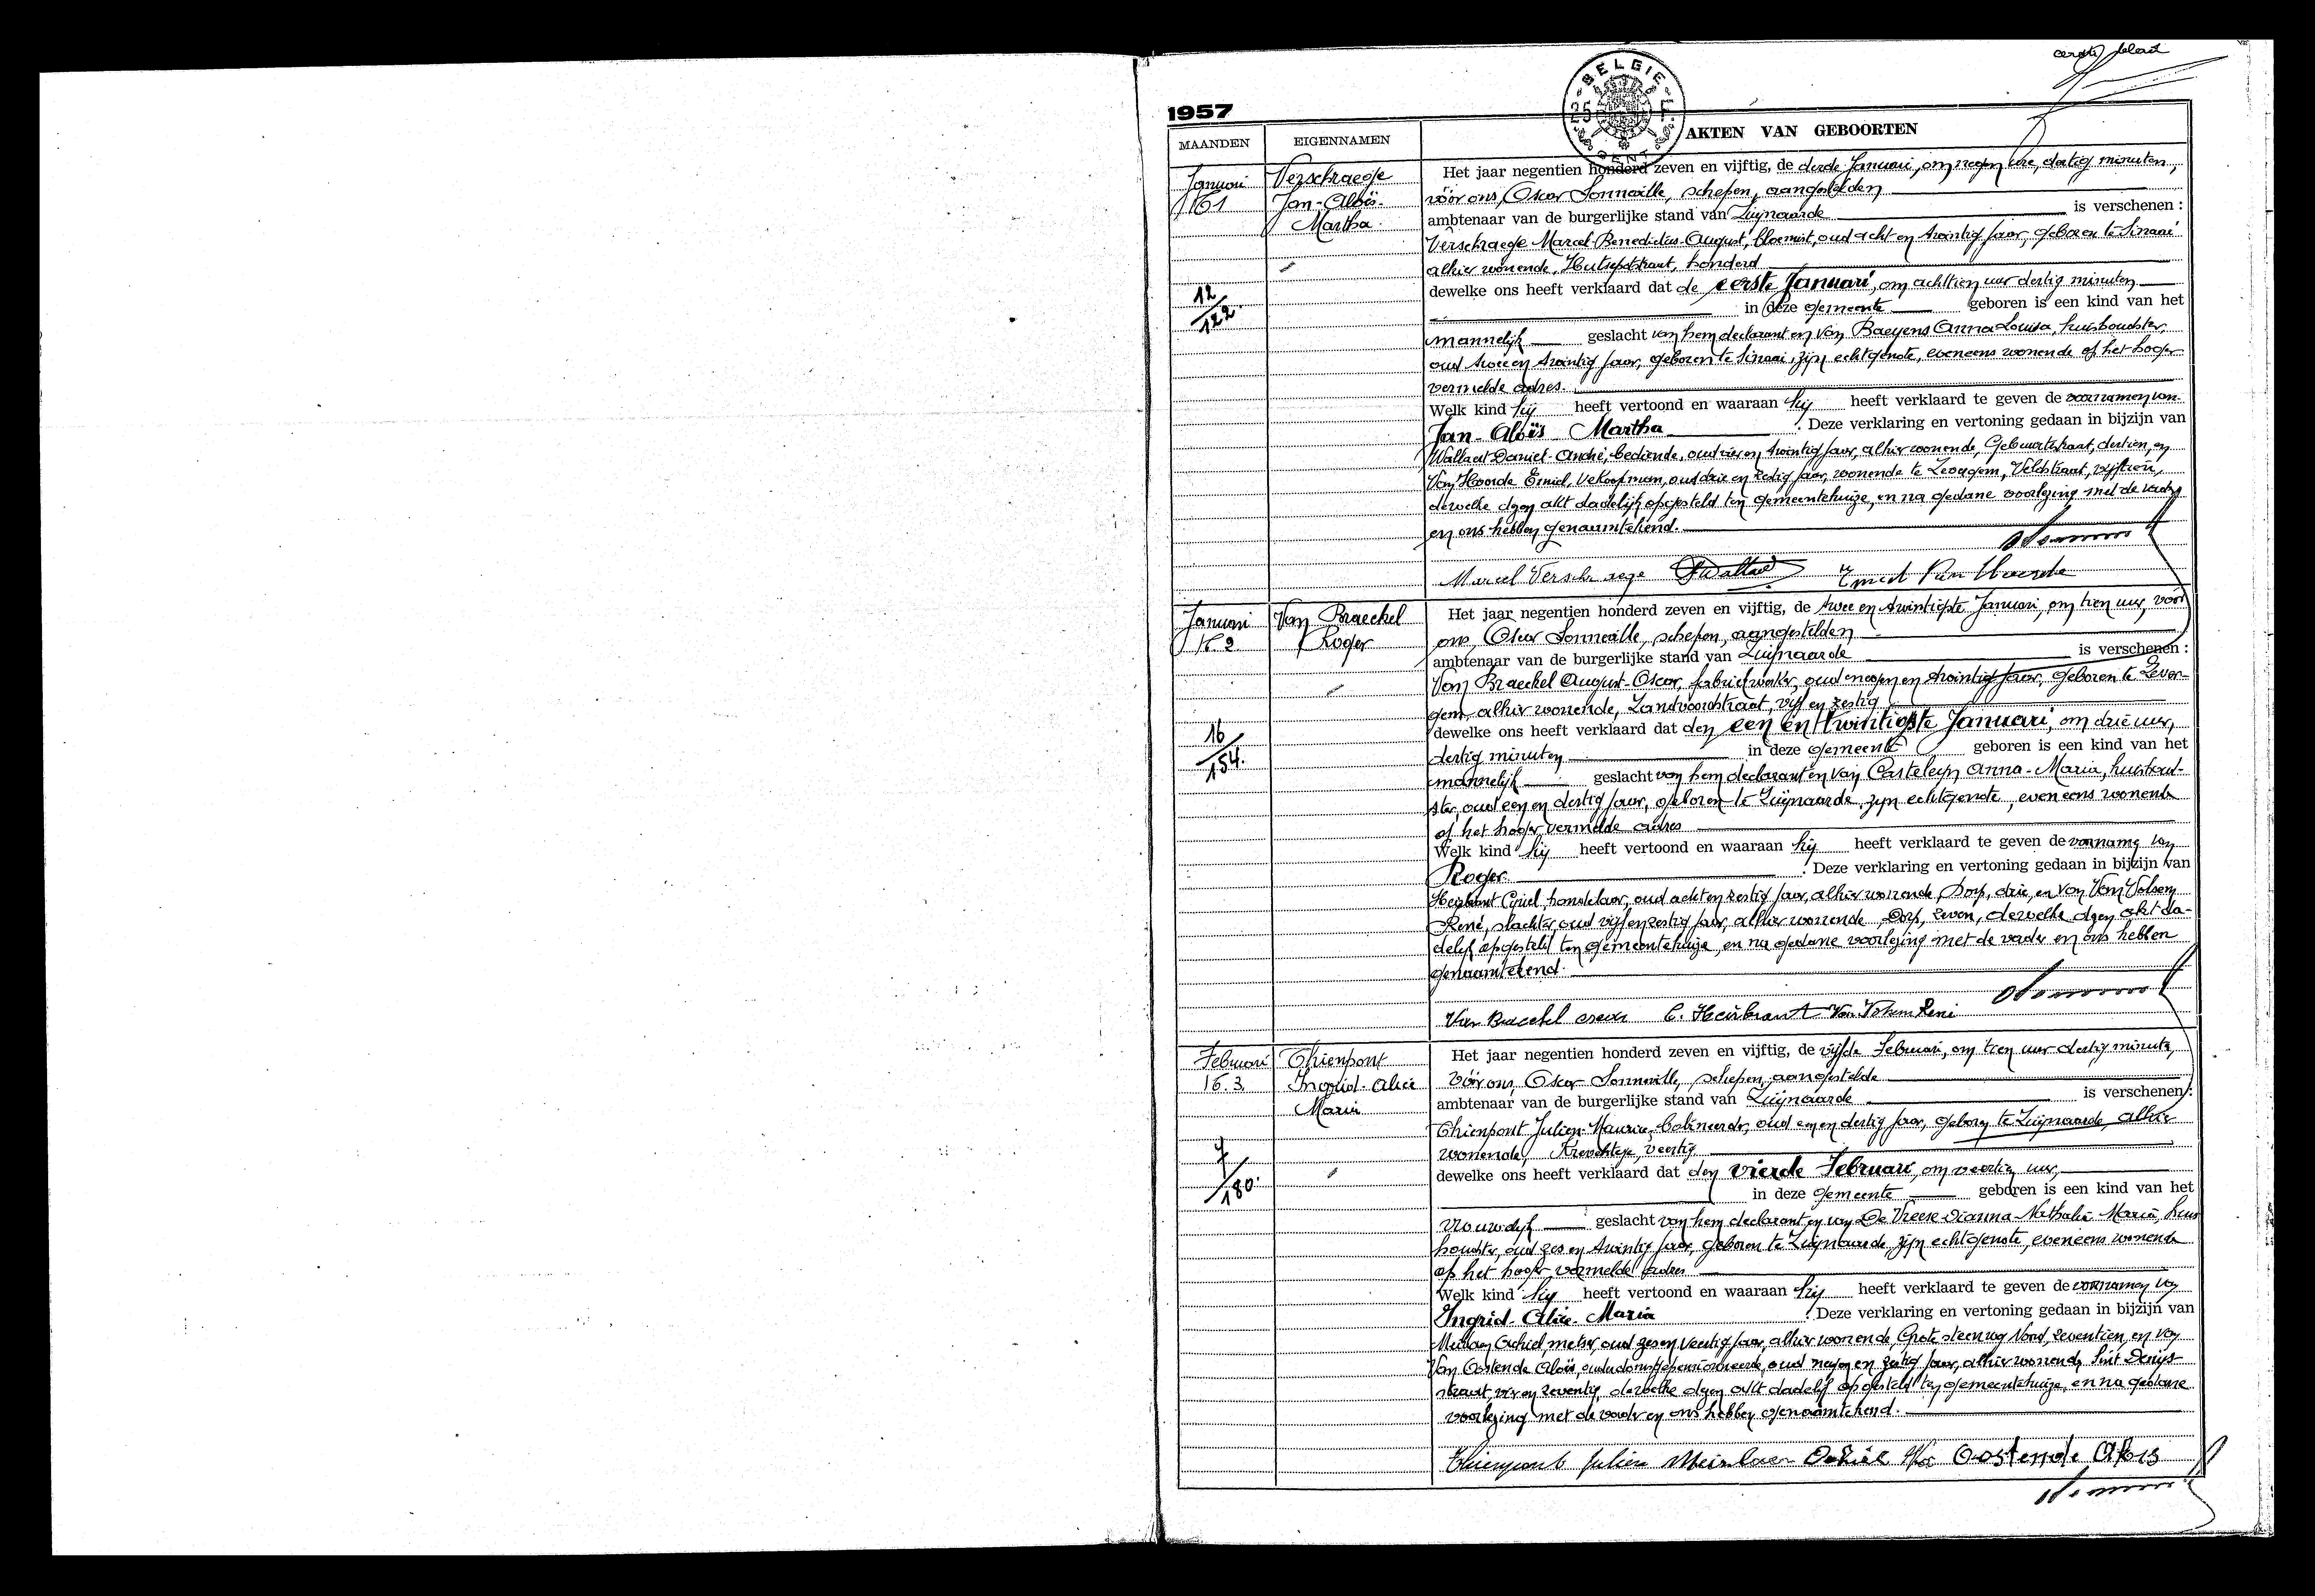 eerste blad
BELGIE
25 F
GENT
1957
MAANDEN EIGENNAMEN AKTEN VAN GEBOORTEN
Januari
N 1
Verschraege
Jan-Aloïs-
Martha
12/122.
Het jaar negentien honderd zeven en vijftig, de derde Januari, om negen ure, dertig minuten,
vóór ons, Oscar Sonneville, schepen, aangestelden
ambtenaar van de burgerlijke stand van Zwijnaarde is verschenen :
Verschraege Marcel-Benedictus-August, bloemist, oud acht en twintig jaar, geboren te Sinaai
alhier wonende, Hutsepotstraat, honderd
dewelke ons heeft verklaard dat de eerste Januari, om achttien uur dertig minuten
in deze gemeente geboren is een kind van het
mannelijk geslacht van hem declarant en van Baeyens Anna Louisa, huishoudster,
oud twee en twintig jaar, geboren te Sinaai, zijn echtgenote, eveneens wonende op het hoger
vermelde adres.
Welk kind hij heeft vertoond en waaraan hij heeft verklaard te geven de voornamen van
Jan-Aloïs-Martha . Deze verklaring en vertoning gedaan in bijzijn van
Wallaert Daniel-André, bediende, oud vier en twintig jaar, alhier wonende, Gebuurtestraat, dertien, en
Van Hoorde Emiel, verkoopman, oud drie en zestig jaar, wonende te Zevergem, Veldstraat, vijftien,
dewelke dezen akt dadelijk opgesteld ten gemeentehuize, en na gedane voorlezing met de vader
en ons hebben genaamtekend.
Marcel Verschraege DWallaert Emiel Van Hoorde
Januari
N 2
Van Braeckel
Roger
16/154.
Het jaar negentien honderd zeven en vijftig, de twee en twintigste Januari, om tien uur, vóór
ons, Oscar Sonneville, schepen, aangestelden
ambtenaar van de burgerlijke stand van Zwijnaarde is verschenen :
Van Braeckel August-Oscar, fabriekwerker, oud negen en twintig jaar, geboren te Zever-
gem, alhier wonende, Zandvoordestraat, vijf en zestig
dewelke ons heeft verklaard dat den een en twintigste Januari, om drie uur,
dertig minuten in deze gemeente geboren is een kind van het
mannelijk geslacht van hem declarant en van Casteleyn Anna-Maria, huishoud-
ster, oud een en dertig jaar, geboren te Zwijnaarde, zijn echtgenote, eveneens wonende
op het hoger vermelde adres
Welk kind hij heeft vertoond en waaraan hij heeft verklaard te geven de voorname van
Roger. . Deze verklaring en vertoning gedaan in bijzijn van
Heirbrant Cyriel, handelaar, oud acht en zestig jaar, alhier wonende, Dorp, drie, en van Van Volsem
René, slachter, oud vijf en zestig jaar, alhier wonende, Dorp, zeven, dewelke dezen akt da-
delijk opgesteld ten gemeentehuize, en na gedane voorlezing met de vader en ons hebben
genaamtekend.
Van Braeckel Oscar C. Heirbrant Van Volsem René
Februari
N. 3
Thienpont
Ingrid-Alice
Maria
7/180.
Het jaar negentien honderd zeven en vijftig, de vijfde Februari, om tien uur dertig minuten,
vóór ons, Oscar Sonneville, schepen, aangestelde
ambtenaar van de burgerlijke stand van Zwijnaarde is verschenen :
Thienpont Julien-Maurice, oud een en dertig jaar, geboren te Zwijnaarde, alhier
wonende, veertig
dewelke ons heeft verklaard dat den vierde Februari, om veertien uur,
in deze gemeente geboren is een kind van het
vrouwelijk geslacht van hem declarant en van De Vreese Dianna-Nathalie Maria, huis
houdster, oud zes en twintig jaar, geboren te Zwijnaarde, zijn echtgenote, eveneens wonende
op het hoger vermelde adres
Welk kind hij heeft vertoond en waaraan hij heeft verklaard te geven de voornamen van
Ingrid-Alice-Maria . Deze verklaring en vertoning gedaan in bijzijn van
oud zes en veertig jaar, alhier wonende, Grote steenweg Noord, zeventien, en van
Van Oostende Aloïs, oud negen en zestig jaar, alhier wonende Sint Denijs
straat, vier en zeventig, dewelke dezen akt dadelijk opgesteld ten gemeentehuize, en na gedane
voorlezing met de vader en ons hebben genaamtekend.
Thienpont Julien Van Oostende Aloïs